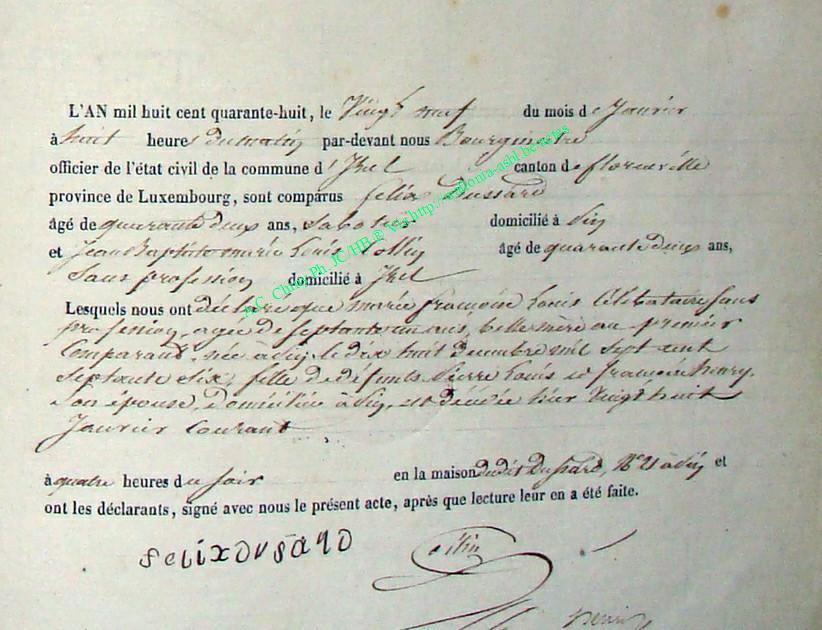 L'AN mil huit cent quarante-huit, le Vingt neuf du mois de Janvier
à huit heures du matin par-devant nous Bourgmestre
officier de l'état civil de la commune d'Izel canton de florenville
province de Luxembourg, sont comparus felix Dussard
âgé de quarante deux ans, Sabotier domicilié à Pin
et Jean Baptiste marie Louis Collin âgé de quarante deux ans,
Sans profession domicilié à Izel
Lesquels nous ont déclaré que marie françoise Louis Célibataire sans
profession, agée de septante un ans, belle mère au premier
Comparant, née à Pin, le dix huit Decembre mil sept cent
septante six, fille de défunts Pierre Louis et françoise henry
son épouse, domiciliée à Pin, est décédée hier Vingt huit
Janvier Courant
à quatre heures du soir en la maison dudit Dussard, N° 21 à Pin et
ont les déclarants, signé avec nous le présent acte, après que lecture leur en a été faite.
FELIX DUSARD
Collin